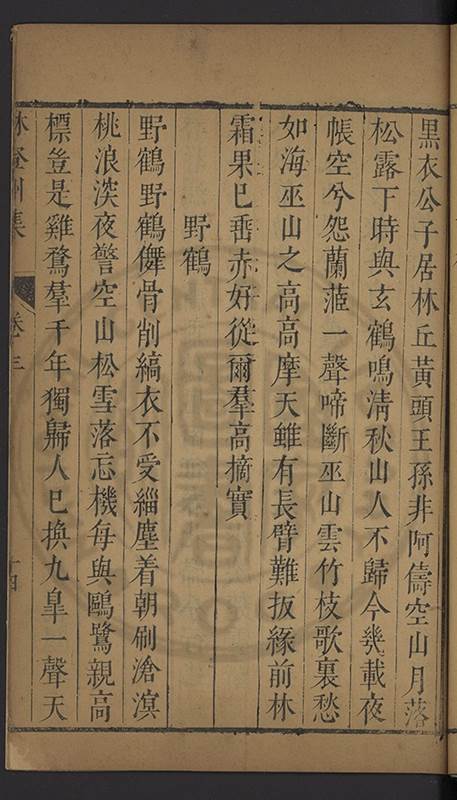 黑衣公子居林丘黃頭王孫非阿儔空山月落
松露下時與玄鶴鳴清秋山人不歸今幾載夜
帳空兮怨蘭蓙一聲啼斷巫山雲竹枝歌裏愁
如海巫山之高高摩天雖有長臂難扳緣前林
霜果已垂赤好從爾羣高摘實
野鶴
野鶴野鶴儛骨削縞衣不受緇塵着朝刷滄溟
桃浪淡夜警空山松雪落忘機每與鷗鷺親高
標豈是雞鶩羣千年獨歸人已換九皐一聲天
林登州集
卷三
十四